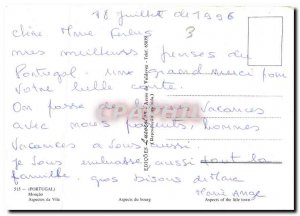 18 juillet de 1996
chère Mme
mes meilleurs penses du
Portugal. un grand merci pour
votre belle carte.
On passe de bonnes vacances
avec nous parents, bonnes
vacances a vous aussi.
je vous embrasse aussi tout la
famille. gros bisous de Marie
Marie Ange
515 - (PORTUGAL)
Monção
Aspectos da Vila
Aspects du bourg
Aspects of the litle town